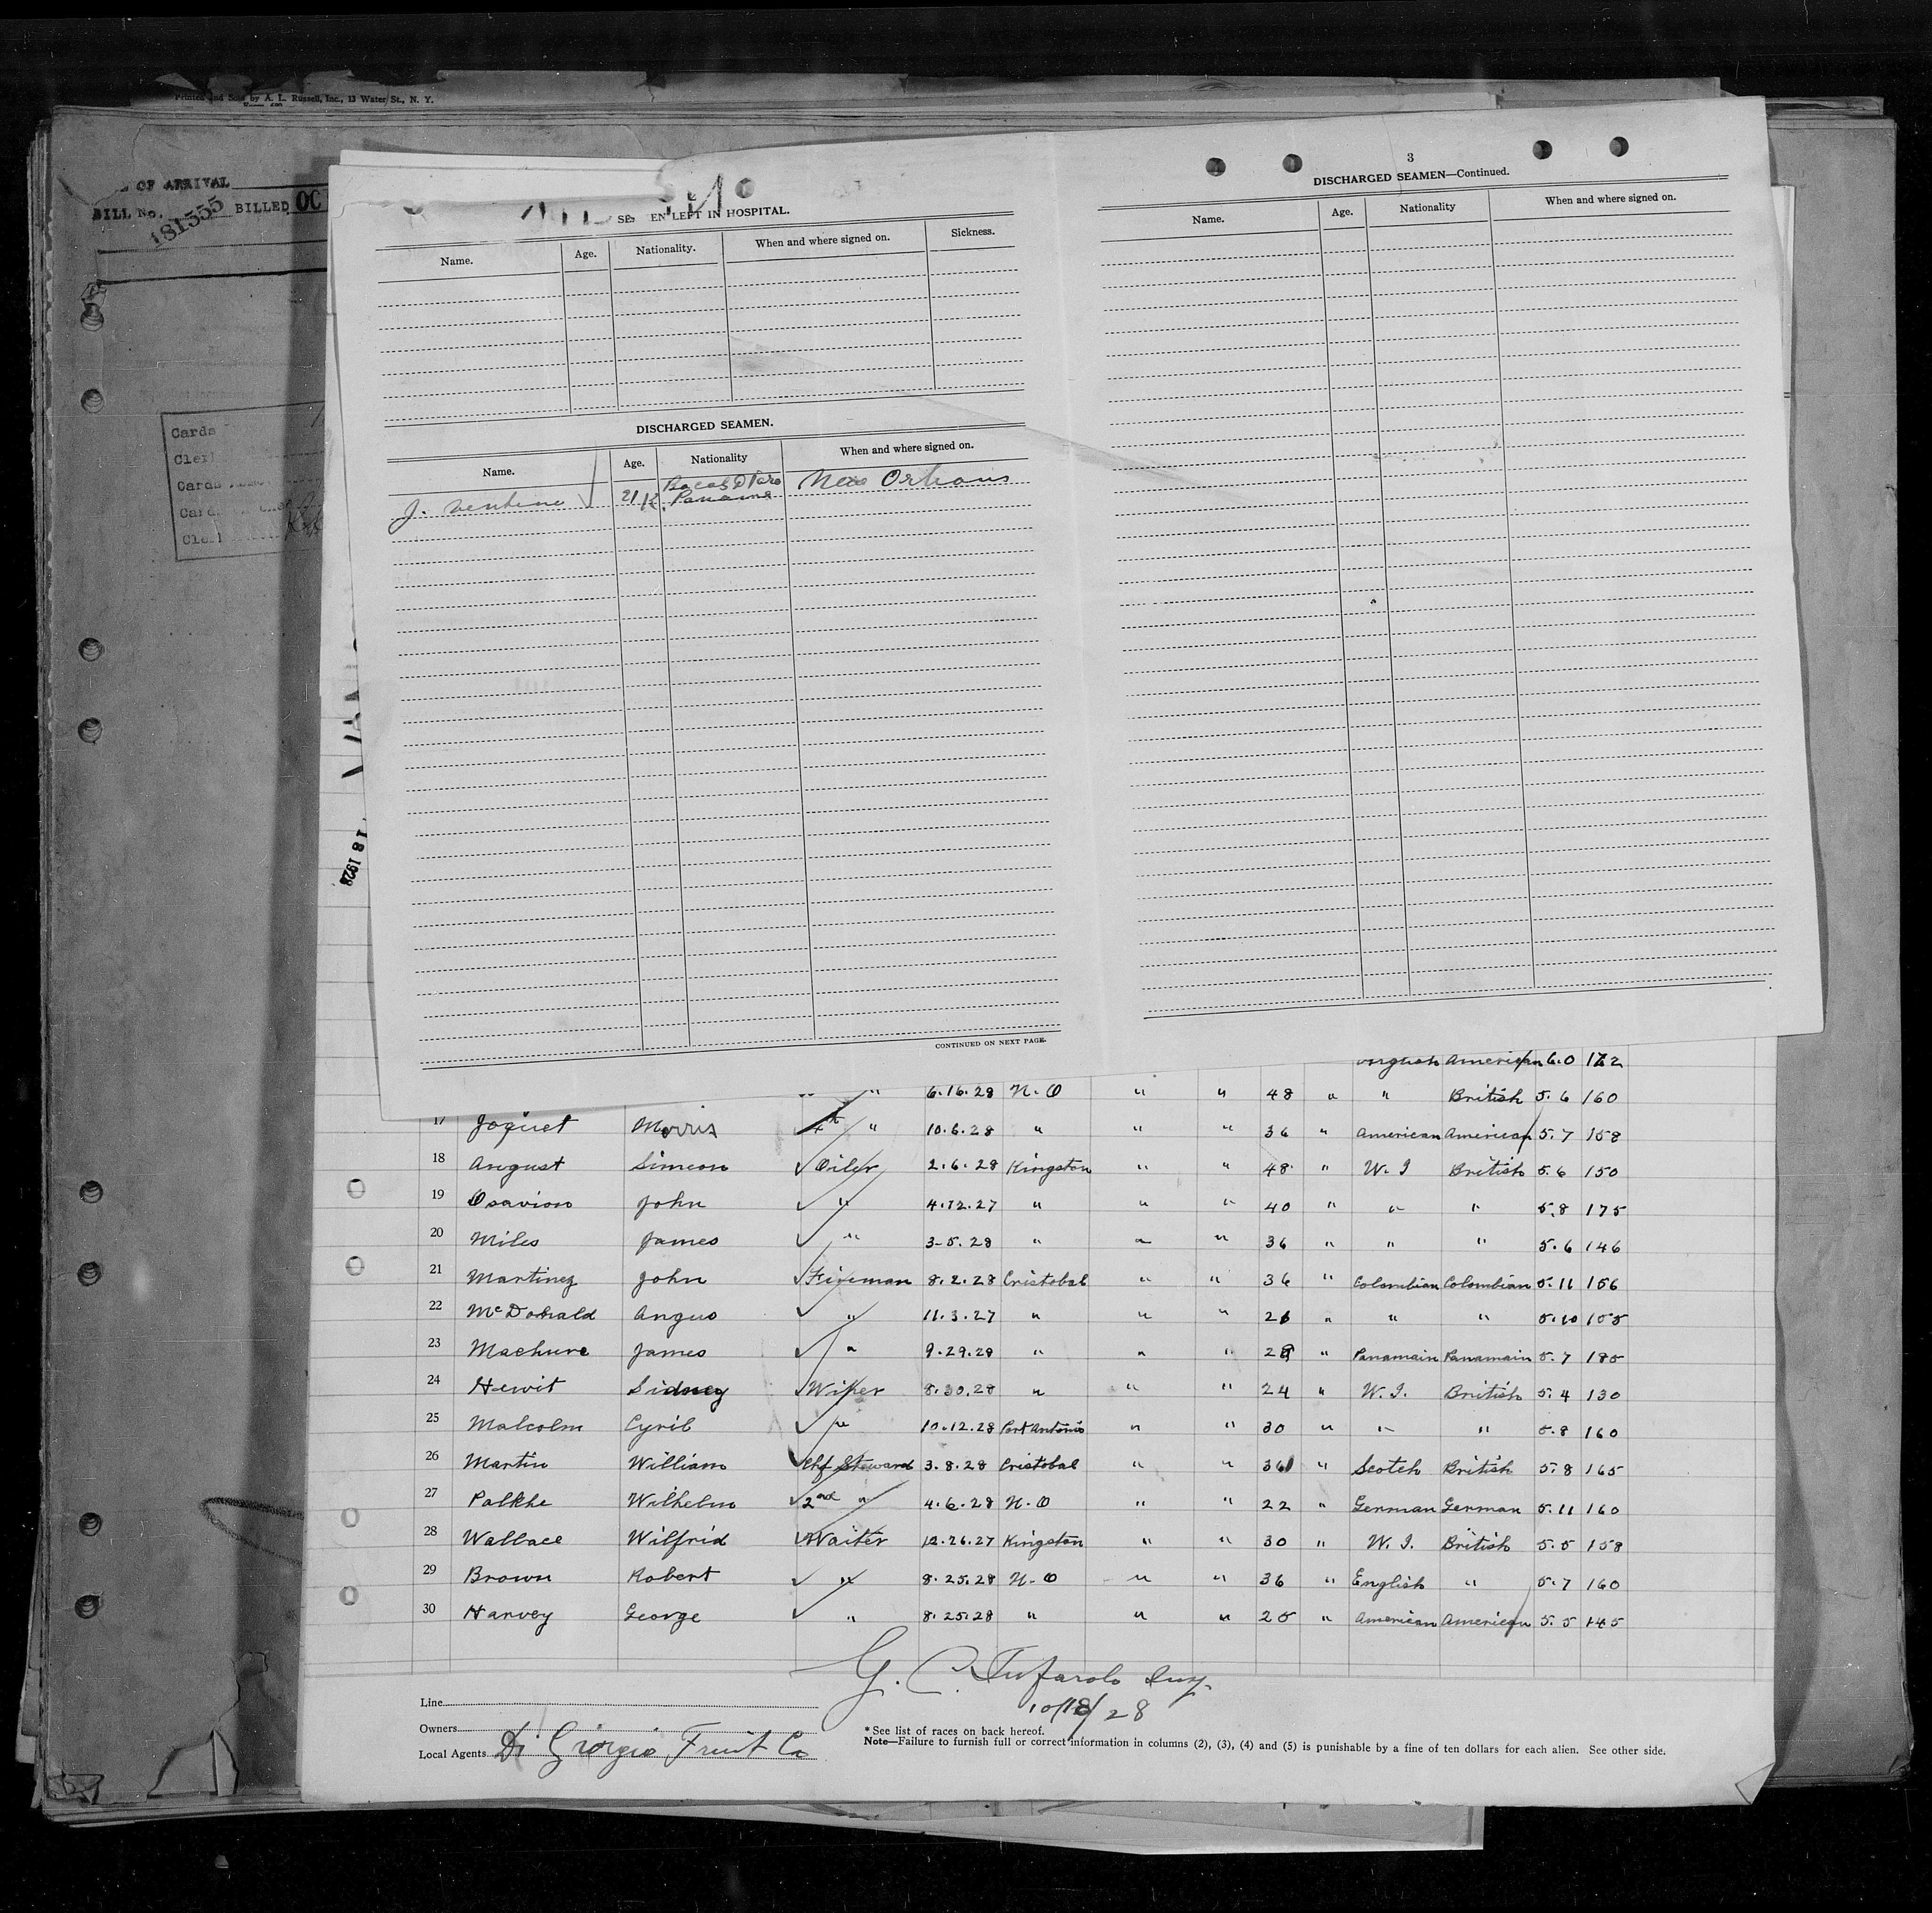 Printed and Sold by A. L. Russell, Inc., 13 Water St., N. Y.
OF ARRIVAL
BILL No. 181555 BILLED OC
Cards
Cler
Cards
Card
Cle
18 1928
SE EN LEFT IN HOSPITAL.
Name. Age. Nationality. When and where signed on. Sickness.
DISCHARGED SEAMEN.
Name. Age. Nationality When and where signed on.
J. 21 Panama New Orleans
CONTINUED ON NEXT PAGE.
3
DISCHARGED SEAMEN—Continued.
Name. Age. Nationality When and where signed on.
American 6.0
" 6.16.28 N.O " " 48 " " British 5.6 160
17 Joquet Morris 4th " 10.6.28 " " " 36 " American American 5.7 158
18 August Simeon Oiler 2.6.28 Kingston " " 48 " W. I British 5.6 150
19 Osavion John " 4.12.27 " " " 40 " " " 5.8 175
20 Miles James " 3-5.28 " " " 36 " " " 5.6 146
21 Martinez John Fireman 8.2.28 Cristobal " " 36 " Colombian Colombian 5.11 156
22 McDonald Angus " 11.3.27 " " " 26 " " " 5.10 155
23 Machure James " 9.29.28 " " " 28 " Panamain Panamain 5.7 185
24 Hewit Sidney Wiper 8.30.28 " " " 24 " W. I. British 5.4 130
25 Malcolm Cyril " 10.12.28 Port Antonio " " 30 " " " 5.8 160
26 Martin William Chf Steward 3.8.28 Cristobal " " 36 " Scotch British 5.8 165
27 Palkhe Wilhelm 2nd " 4.6.28 N.O " " 22 " German German 5.11 160
28 Wallace Wilfrid Waiter 12.26.27 Kingston " " 30 " W. I. British 5.5 158
29 Brown Robert " 8.25.28 N.O " " 36 " English " 5.7 160
30 Harvey George " 8.25.28 " " " 25 " American American 5.5 145
G. C. Tufarolo
10/18/28
Line
Owners
Local Agents Di Giorgio Fruit Co
* See list of races on back hereof.
Note—Failure to furnish full or correct information in columns (2), (3), (4) and (5) is punishable by a fine of ten dollars for each alien. See other side.